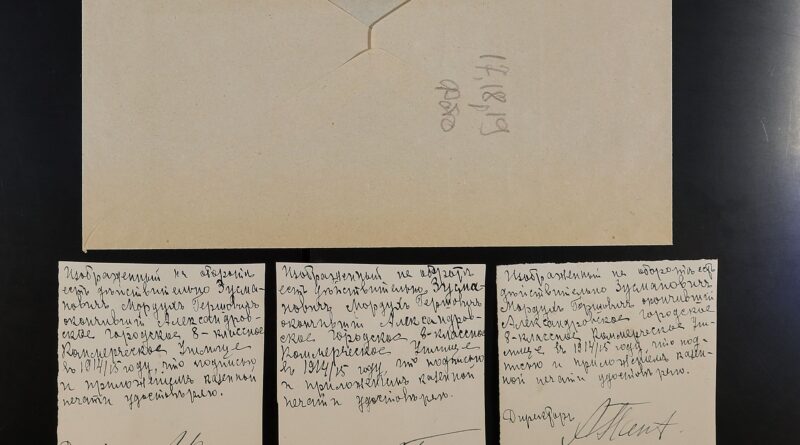 17,18,19
фото
Изображенный на оборотѣ
есть дѣйствительно Зусма-
новичъ Мордухъ Гершовичъ
окончившій Александров-
ское городское 8-классное
Коммерческое Училище
въ 1914/15 году, что подписью
и приложеніемъ казенной
печати удостовѣряю.
Изображенный на оборотѣ
есть дѣйствительно Зусма-
новичъ Мордухъ Гершовичъ
окончившій Александров-
ское городское 8-классное
Коммерческое Училище
въ 1914/15 году, что подписью
и приложеніемъ казенной
печати удостовѣряю.
Изображенный на оборотѣ есть
дѣйствительно Зусмановичъ
Мордухъ Гершовичъ окончившій
Александровское городское
8-классное Коммерческое Учи-
лище въ 1914/15 году, что под-
писью и приложеніемъ казен-
ной печати удостовѣряю.
Директоръ